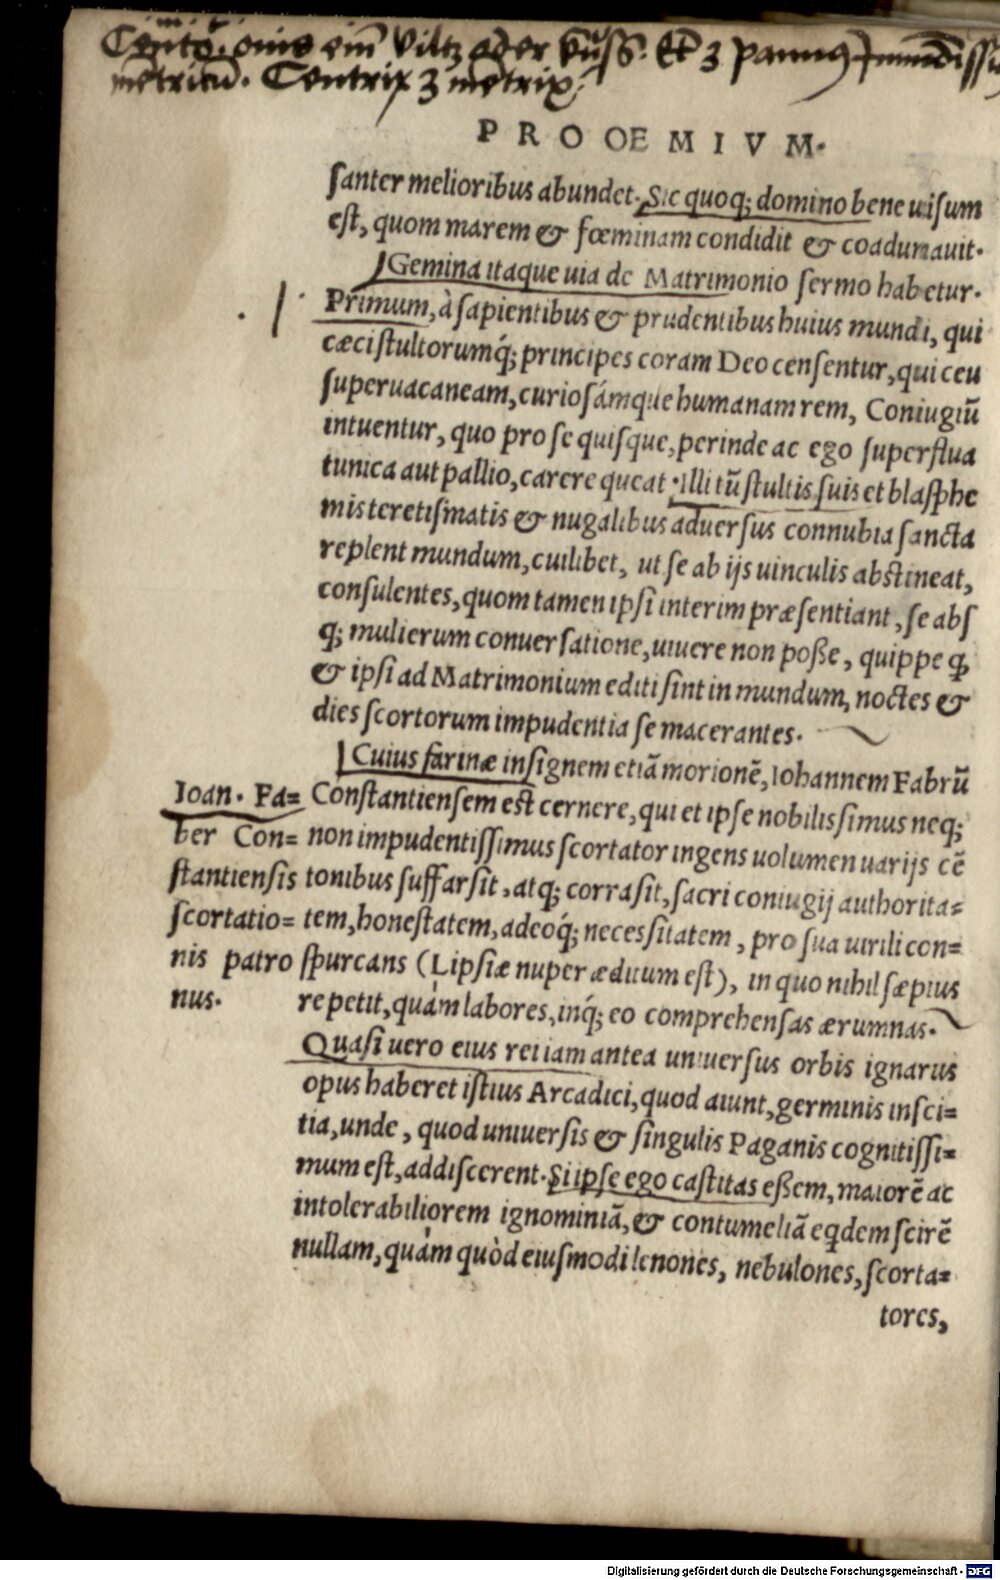 Cento. onis ein Viltz oder kuss. Et 3 pannus
metricu. Centrix 3 metrix
PROOEMIVM.
santer melioribus abundet. Sic quoq; domino bene uisum
est, quom marem & fœminam condidit & coadunauit.
Gemina itaque uia de Matrimonio sermo habetur.
Primum, à sapientibus & prudentibus huius mundi, qui
cæci stultorumq́; principes coram Deo censentur, qui ceu
superuacaneam, curiosámque humanam rem, Coniugiũ
intuentur, quo pro se quisque, perinde ac ego superflua
tunica aut pallio, carere queat. Illi tũ stultis suis et blasphe
mis teretismatis & nugalibus aduersus connubia sancta
replent mundum, cuilibet, ut se ab ijs uinculis abstineat,
consulentes, quom tamen ipsi interim præsentiant, se abs
q; mulierum conuersatione, uiuere non poße, quippe ꝙ
& ipsi ad Matrimonium editi sint in mundum, noctes &
dies scortorum impudentia se macerantes.
Cuius farinæ insignem etiã morionẽ, Iohannem Fabrũ
Constantiensem est cernere, qui et ipse nobilissimus neq;
non impudentissimus scortator ingens uolumen uarijs cẽ
tonibus suffarsit, atq; corrasit, sacri coniugij authorita=
tem, honestatem, adeoq́; necessitatem, pro sua uirili con=
spurcans (Lipsiæ nuper æditum est), in quo nihil sæpius
repetit, quám labores, inq́; eo comprehensas ærumnas.
Ioan. Fa=
ber Con=
stantiensis
scortatio=
nis patro
nus.
Quasi uero eius rei iam antea uniuersus orbis ignarus
opus haberet istius Arcadici, quod aiunt, germinis insci=
tia, unde, quod uniuersis & singulis Paganis cognitissi=
mum est, addiscerent. Si ipse ego castitas eßem, maiorẽ ac
intolerabiliorem ignominiã, & contumeliã eqdem scirẽ
nullam, quàm quòd eiusmodi lenones, nebulones, scorta=
tores,
Digitalisierung gefördert durch die Deutsche Forschungsgemeinschaft - DFG